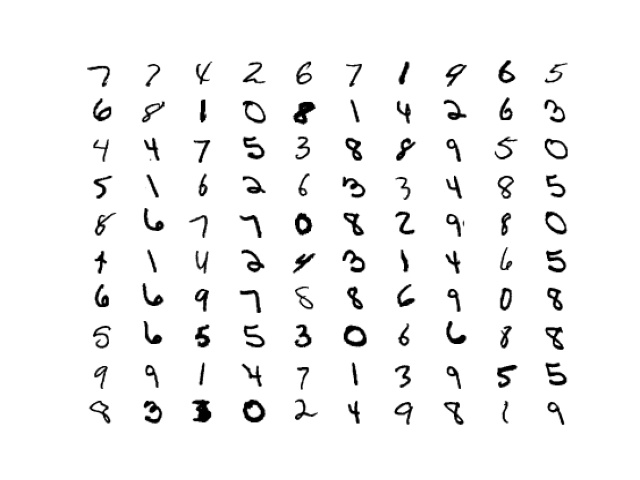 7 7 4 2 6 7 1 9 6 5
6 8 1 0 8 1 4 2 6 3
4 4 7 5 3 8 8 9 5 0
5 1 6 2 6 3 3 4 8 5
8 6 7 7 0 8 2 9 8 0
4 1 4 2 4 3 1 4 6 5
6 6 9 7 8 8 6 9 0 8
5 6 5 5 3 0 6 6 8 8
9 9 1 4 7 1 3 9 5 5
8 3 3 0 2 4 9 8 1 9